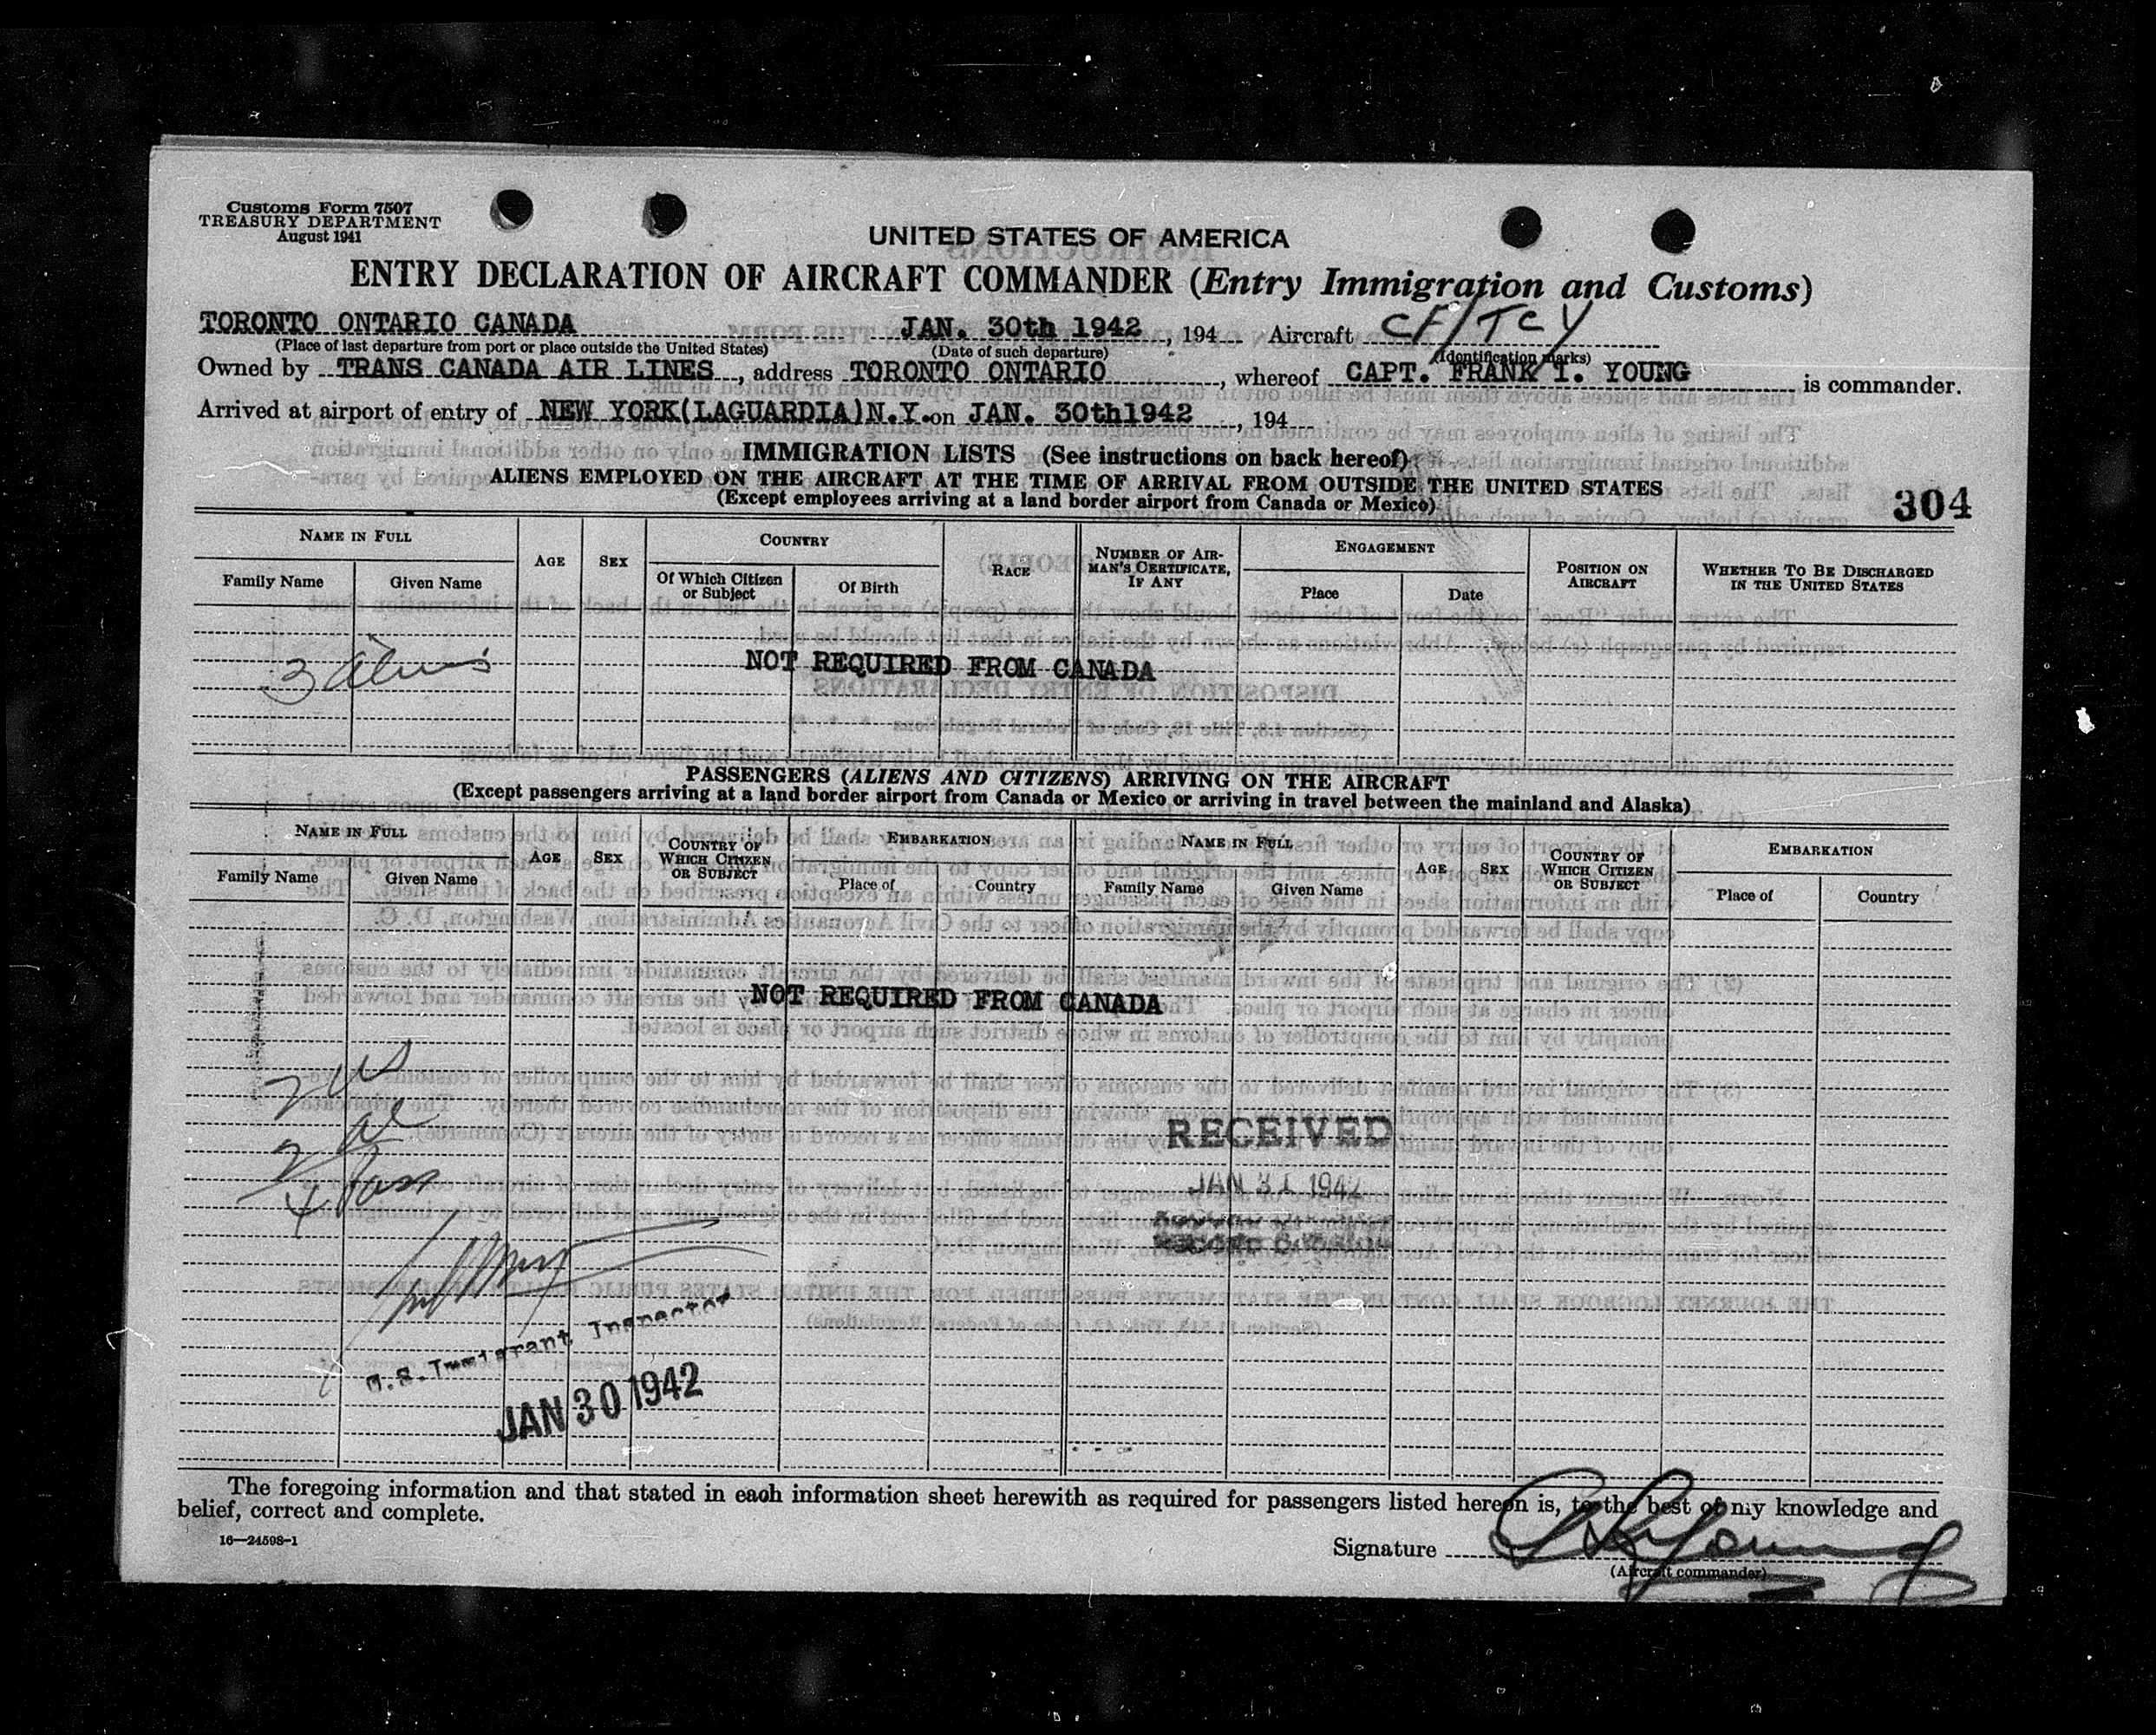 Customs Form 7507
TREASURY DEPARTMENT
August 1941
UNITED STATES OF AMERICA
ENTRY DECLARATION OF AIRCRAFT COMMANDER (Entry Immigration and Customs)
TORONTO ONTARIO CANADA JAN. 30th 1942, 194 Aircraft CF/TCY
(Place of last departure from port or place outside the United States) (Date of such departure) (Identification marks)
Owned by TRANS CANADA AIR LINES, address TORONTO ONTARIO, whereof CAPT. FRANK I. YOUNG is commander.
Arrived at airport of entry of NEW YORK(LAGUARDIA)N.Y. on JAN. 30th1942, 194
IMMIGRATION LISTS (See instructions on back hereof)
ALIENS EMPLOYED ON THE AIRCRAFT AT THE TIME OF ARRIVAL FROM OUTSIDE THE UNITED STATES
(Except employees arriving at a land border airport from Canada or Mexico)
304
NAME IN FULL AGE SEX COUNTRY RACE NUMBER OF AIRMAN'S CERTIFICATE, IF ANY ENGAGEMENT POSITION ON AIRCRAFT WHETHER TO BE DISCHARGED IN THE UNITED STATES
Family Name Given Name Of Which Citizen or Subject Of Birth Place Date
3 aliens
NOT REQUIRED FROM CANADA
PASSENGERS (ALIENS AND CITIZENS) ARRIVING ON THE AIRCRAFT
(Except passengers arriving at a land border airport from Canada or Mexico or arriving in travel between the mainland and Alaska)
NAME IN FULL AGE SEX COUNTRY OF WHICH CITIZEN OR SUBJECT EMBARKATION NAME IN FULL AGE SEX COUNTRY OF WHICH CITIZEN OR SUBJECT EMBARKATION
Family Name Given Name Place of Country Family Name Given Name Place of Country
NOT REQUIRED FROM CANADA
2 US
2 al
4 Pass
RECEIVED
JAN 31 1942
RECORD
U.S. Immigrant Inspector
JAN 30 1942
The foregoing information and that stated in each information sheet herewith as required for passengers listed hereon is, to the best of my knowledge and
belief, correct and complete.
16—24598-1
Signature Young
(Aircraft commander)